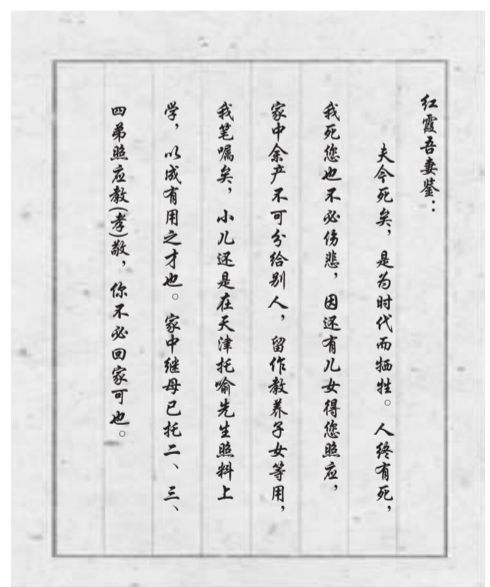 红霞吾妻鉴：
夫今死矣，是为时代而牺牲。人终有死，
我死您也不必伤悲，因还有儿女得您照应，
家中余产不可分给别人，留作教养子女等用，
我笔嘱矣，小儿还是在天津托喻先生照料上
学，以成有用之才也。家中继母已托二、三、
四弟照应教(孝)敬，你不必回家可也。